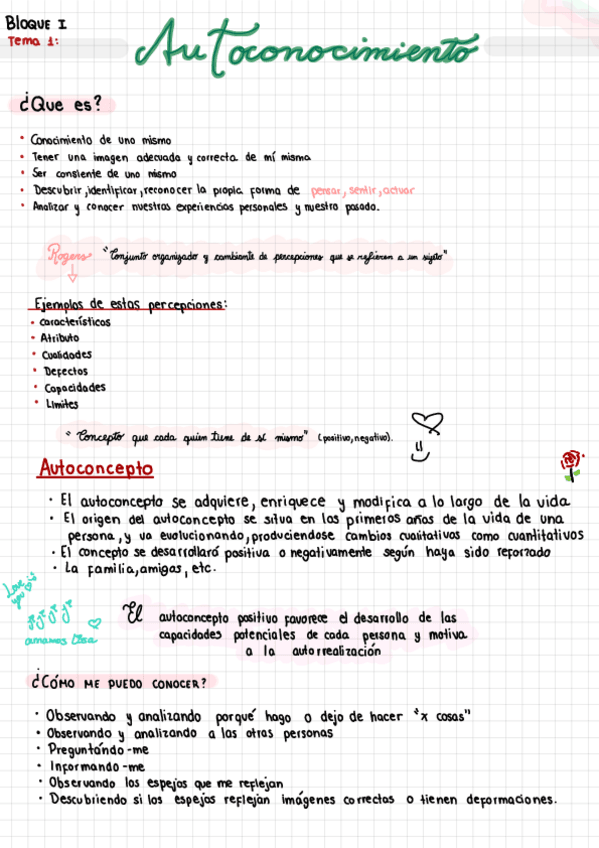 BLOQUE I
Tema 1:
Autoconocimiento
¿Que es?
• Conocimiento de uno mismo
• Tener una imagen adecuada y correcta de mí misma
• Ser consiente de uno mismo
• Descubrir, identificar, reconocer la propia forma de pensar, sentir, actuar
• Analizar y conocer nuestras experiencias personales y nuestro pasado.
Rogers "Conjunto organizado y cambiante de percepciones que se refieren a un sujeto"
Ejemplos de estas percepciones:
• características
• Atributo
• Cualidades
• Defectos
• Capacidades
• Limites
"Concepto que cada quien tiene de sí mismo" (positivo, negativo).
Autoconcepto
• El autoconcepto se adquiere, enriquece y modifica a lo largo de la vida
• El origen del autoconcepto se situa en los primeros años de la vida de una
persona, y va evolucionando, produciendose cambios cualitativos como cuantitativos
• El concepto se desarrollará positiva o negativamente según haya sido reforzado
• La familia, amigas, etc.
Love
you
El autoconcepto positivo favorece el desarrollo de las
capacidades potenciales de cada persona y motiva
a la autorrealización
¿CÓMO ME PUEDO CONOCER?
• Observando y analizando porqué hago o dejo de hacer "x cosas"
• Observando y analizando a las otras personas
• Preguntándo-me
• Informando-me
• Observando los espejos que me reflejan
• Descubriendo si los espejos reflejan imágenes correctas o tienen deformaciones.